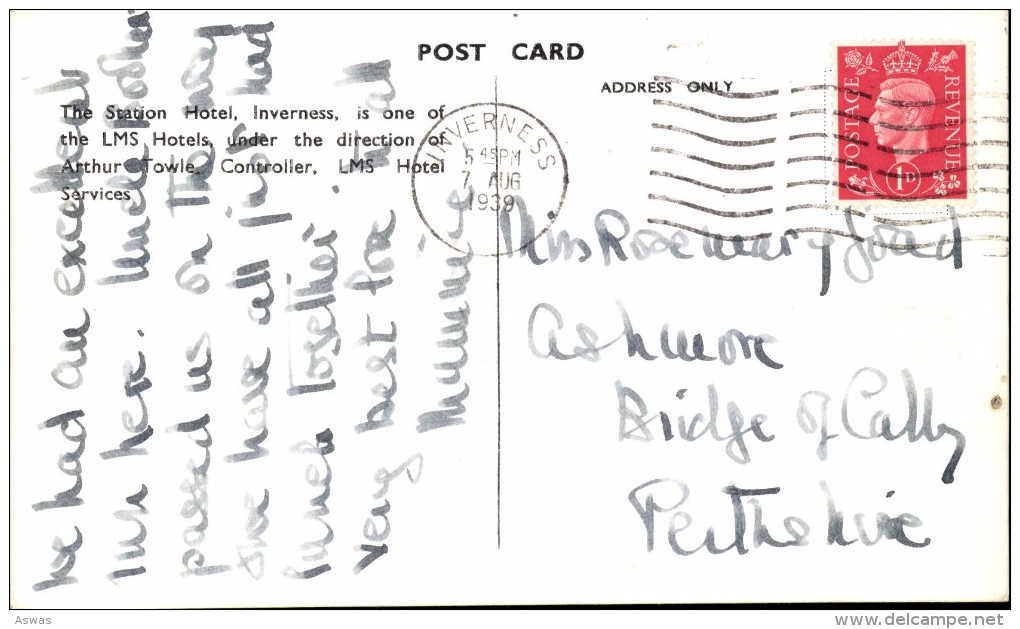 POST CARD
ADDRESS ONLY
The Station Hotel, Inverness, is one of
the LMS Hotels, under the direction of
Arthur Towle, Controller, LMS Hotel
Services
INVERNESS
5 45PM
7 AUG
1939
POSTAGE
REVENUE
1D
Miss Rosemary
Ashmore
Bridge of Cally
Perthshire
We had an excellent
here.
passed us on the way
have all had
lunch together.
Very best love
Mummie
Aswas
www.delcampe.net